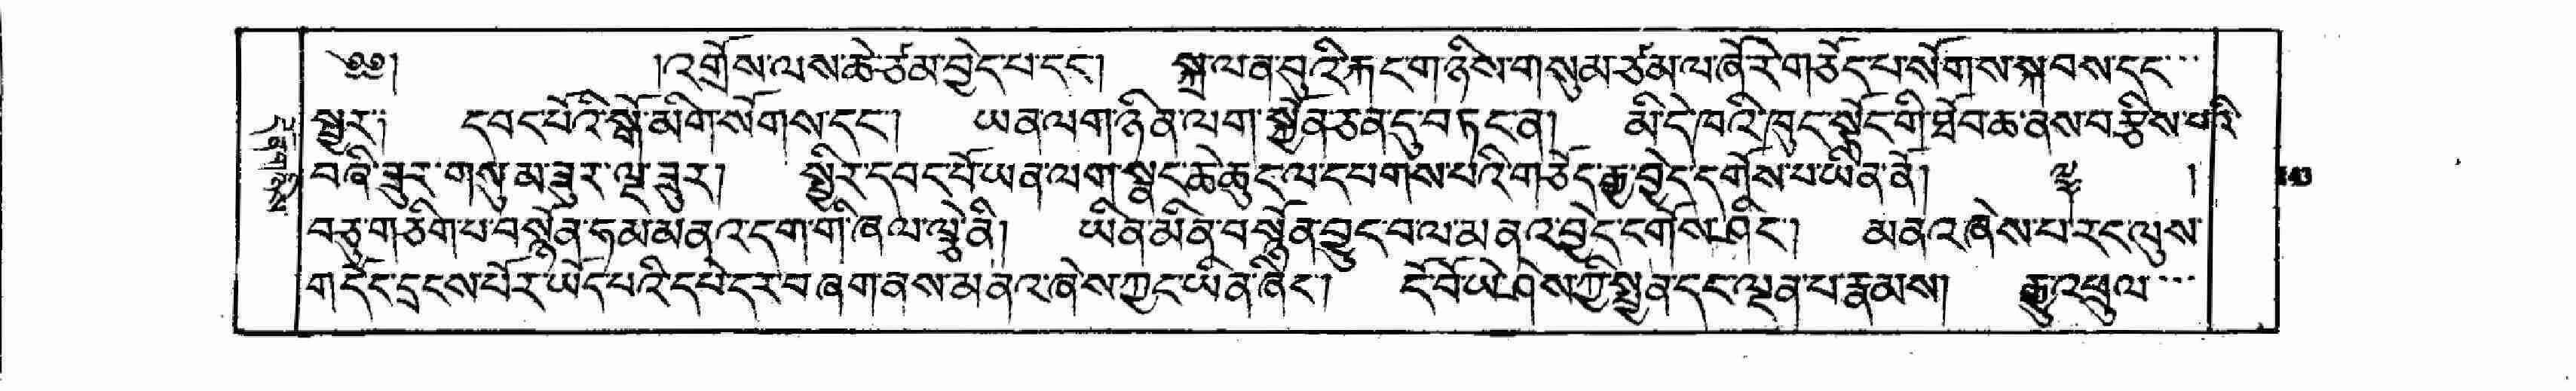 ༄༅། །འགྲོས་ལས་ཆེ་ཙམ་བྱེད་པ་དང་། སྐྲ་ལན་བུའི་རྐང་གཉིས་གསུམ་ཙམ་ལ་ཞོ་རེ་གཅོད་པ་སོགས་སྐབས་དང་
སྦྱར། དབང་པོའི་སྒོ་མིག་སོགས་དང་། ཡན་ལག་ཉིན་ལག་སྐྱོན་ཅན་དུ་བཏང་ན། མི་དེ་ཁའི་ཁུང་སྟོང་གི་ཐོབ་ཆ་ནས་བརྩིས་པའི
བཞི་ཟུར་གསུམ་ཟུར་ལྔ་ཟུར། སྤྱིར་དབང་པོ་ཡན་ལག་སྣང་ཆེ་ཆུང་ལ་དཔགས་པའི་གཅོད་རྒྱ་བྱེད་དགོས་པ་ཡིན་ནོ། །
བཅུ་གཅིག་པ་བསྙོན་ཧམ་མནའ་དག་གི་ཞལ་ལྕེ་ནི། ཡིན་མིན་བསྙོན་བྱུང་བ་ལ་མནའ་བྱེད་དགོས་ཤིང་། མནའ་ཞེས་པ་རང་ལུས་
གདོང་དྲངས་པོར་ཡོད་པའི་དཔེ་དར་བ་ཞག་ནས་མནའ་ཞེས་ཀྱང་ཡིན་ཞིང་། ངོ་བོ་ཡེ་ཤེས་ཀྱི་སྤྱན་དང་ལྡན་པ་རྣམས། རྒྱུ་འཕྲུལ་
143